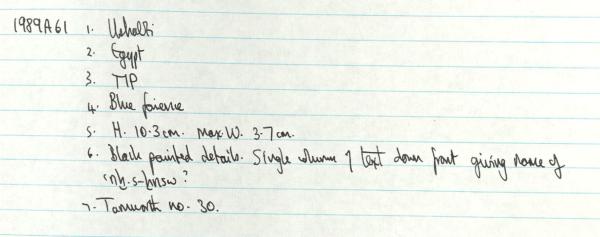 1989A61 1. Ushabti
2. Egypt
3. TIP
4. Blue faience
5. H. 10.3cm. Max.W. 3.7cm.
6. Black painted details. Single column of text down front giving name of
ꜥnḫ.s-ḫnsw?
7. Tamworth no. 30.